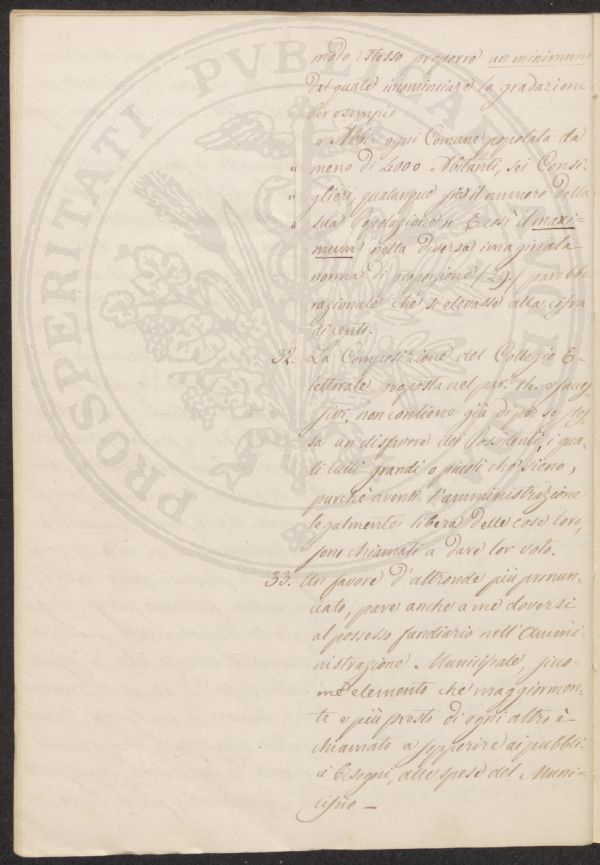 modo stesso proporrò un minimum
dal quale incominciare la gradazione.
Per esempio
" Abbia ogni Comune popolata da
" meno di 4000 Abitanti, sei Consi-
" glieri, qualunque sia il numero della
" sua Popolazione " E così il maxi-
mum nella diversa imaginata
norma di proporzione parebbe
razionale che si elevasse alla cifra
di cento.
32. La Composizione del Collegio E-
lettorale proposta nel par.
non contiene già di per se stes-
sa un disfavore dei Possidenti, i qua-
li tutti grandi o piccoli che sieno,
purchè aventi l'amministrazione
legalmente libera delle cose loro,
sono chiamati a dare lor voto.
33. Un favore d'altronde più pronun-
ciato, pare anche a me doversi
al possesso fundiario nell'Ammi-
nistrazione Municipale, sicco-
me elemento che maggiormen-
te e più presto di ogni altro è
chiamato a sopperire ai pubbli-
ci bisogni, alle spese del Muni-
cipio —
PROSPERITATI PVBLICAE